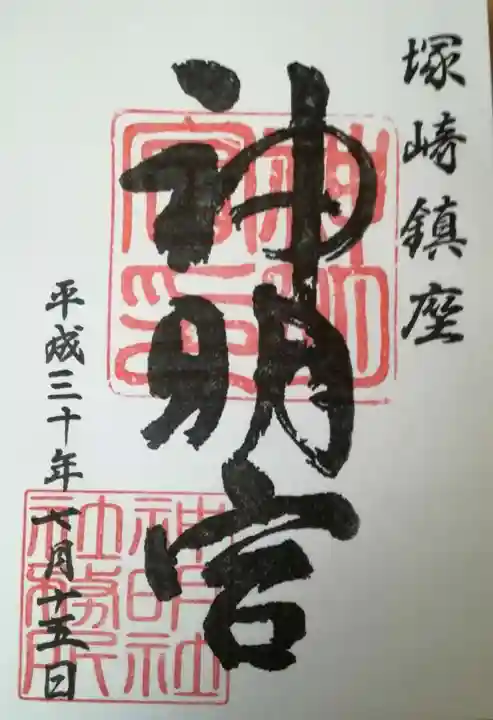 塚崎鎮座
神明宮
平成三十年七月十五日
神明宮印
神明社社務所